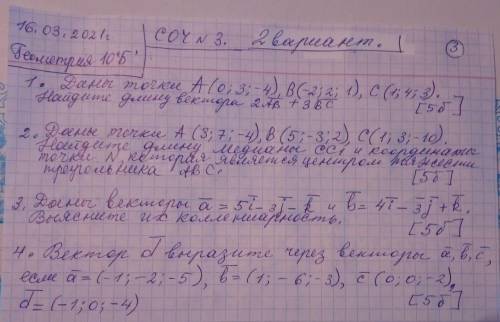 16.03.2021г
Геометрия 10"Б"
СОЧ №3. 2 вариант.
3
1. Даны точки А(0; 3; -4), В(-2; 2; 1), С(1; 4; 3).
Найдите длину вектора 2АВ + 3ВС
[5б]
2. Даны точки А (3; 7; -4), В(5; -3; 2), С(1; 3; -10).
Найдите длину медианы СС1 и координаты
точки N, которая является центром тяжести
треугольника АВС.
[5б]
3. Даны векторы a̅ = 5i̅ - 3j̅ - k̅ и b̅ = 4i̅ - 3j̅ + k̅.
Выясните их коллениарность.
[5б]
4. Вектор d̅ выразите через векторы a̅, b̅, c̅,
если a̅ = (-1; -2; -5), b̅ = (1; -6; -3), c̅ (0; 0; -2),
d̅ = (-1; 0; -4)
[5б]